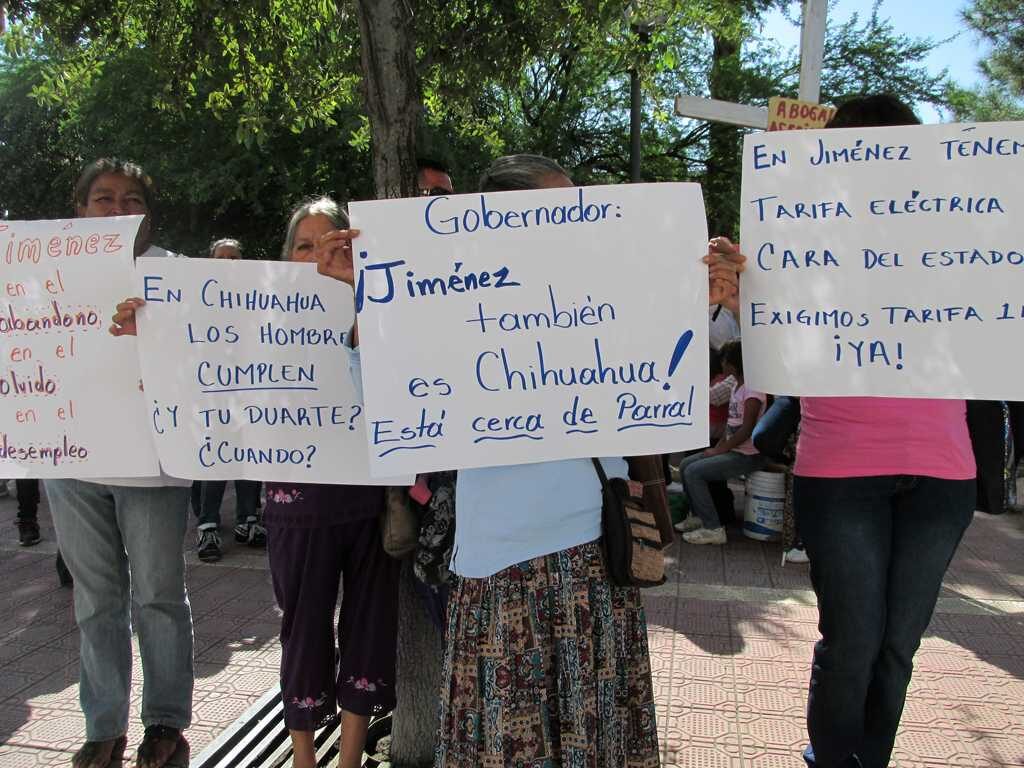 Jiménez
en el
abandono,
en el
olvido
en el
desempleo
EN CHIHUAHUA
LOS HOMBRE
CUMPLEN
¿Y TU DUARTE?
¿CUANDO?
Gobernador:
¡Jiménez
también
es Chihuahua!
Está cerca de Parral
ABOGA
EN JIMÉNEZ TENEM
TARIFA ELÉCTRICA
CARA DEL ESTADO
EXIGIMOS TARIFA
¡YA!